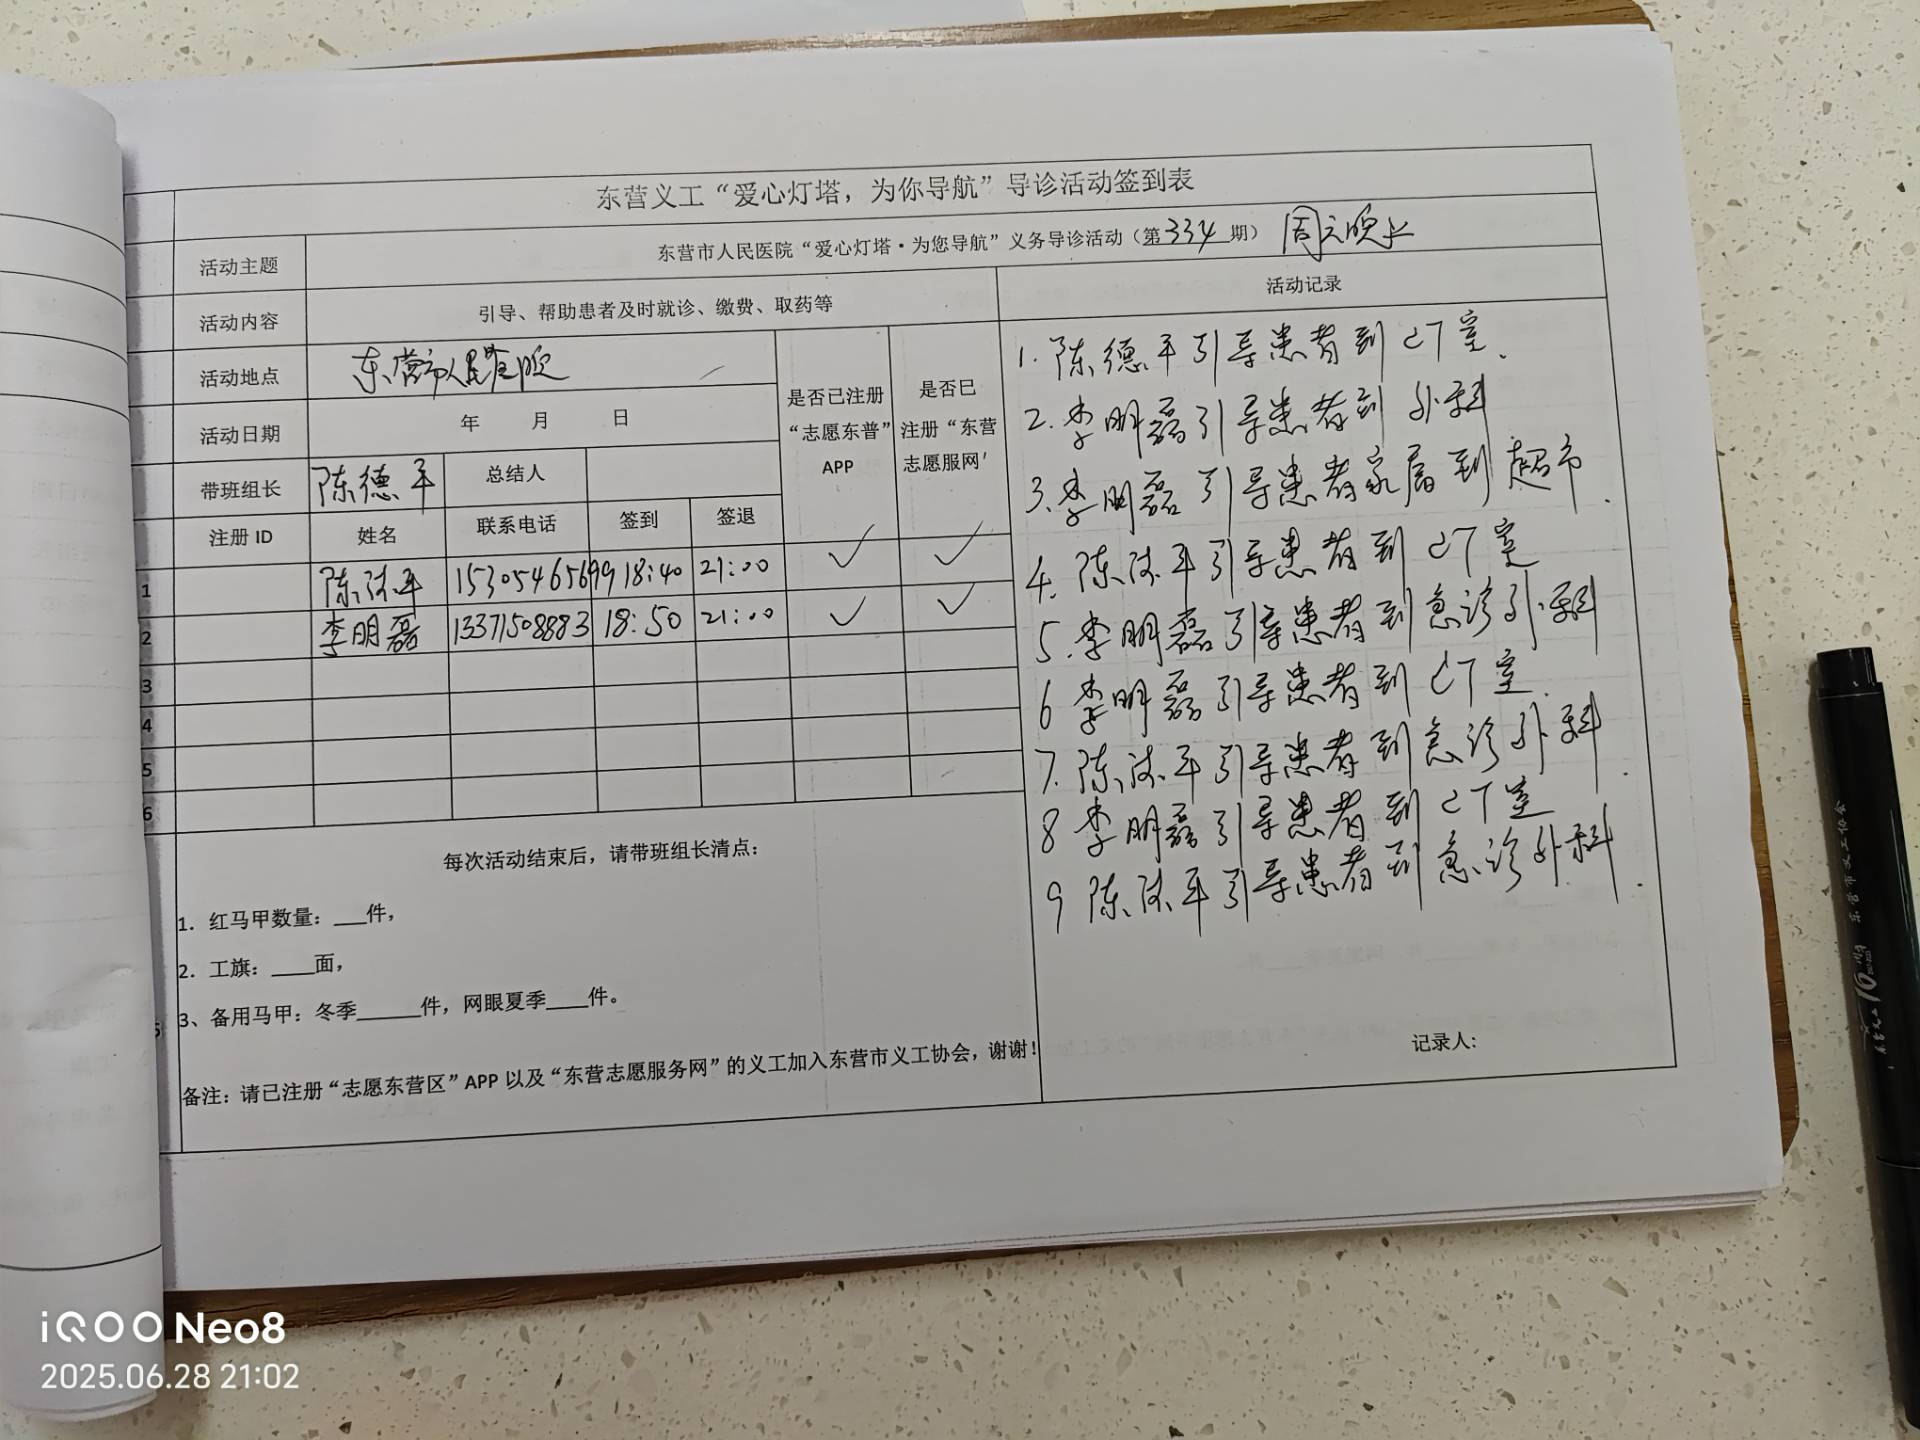 东营义工“爱心灯塔，为你导航”导诊活动签到表
活动主题 东营市人民医院“爱心灯塔·为您导航”义务导诊活动（第334期） 周六晚上
活动内容 引导、帮助患者及时就诊、缴费、取药等 活动记录
活动地点 东营市人民医院
活动日期 年 月 日
是否已注册“志愿东营”APP
是否已注册“东营志愿服网’
带班组长 陈德平 总结人
注册 ID 姓名 联系电话 签到 签退
1 陈德平 15305465699 18:40 21:00 ✓ ✓
2 李明磊 13371508883 18:50 21:00 ✓ ✓
3
4
5
6
1. 陈德平引导患者到CT室.
2. 李明磊引导患者到外科
3. 李明磊引导患者家属到超市.
4. 陈德平引导患者到CT室
5. 李明磊引导患者到急诊外科
6 李明磊引导患者到CT室.
7. 陈德平引导患者到急诊外科.
8 李明磊引导患者到CT室
9 陈德平引导患者到急诊外科.
记录人:
每次活动结束后，请带班组长清点：
1. 红马甲数量：___件，
2. 工旗：____面，
3、备用马甲：冬季______件，网眼夏季____件。
备注：请已注册“志愿东营区”APP 以及“东营志愿服务网”的义工加入东营市义工协会，谢谢！
东营市义工协会
iQOO Neo8
2025.06.28 21:02